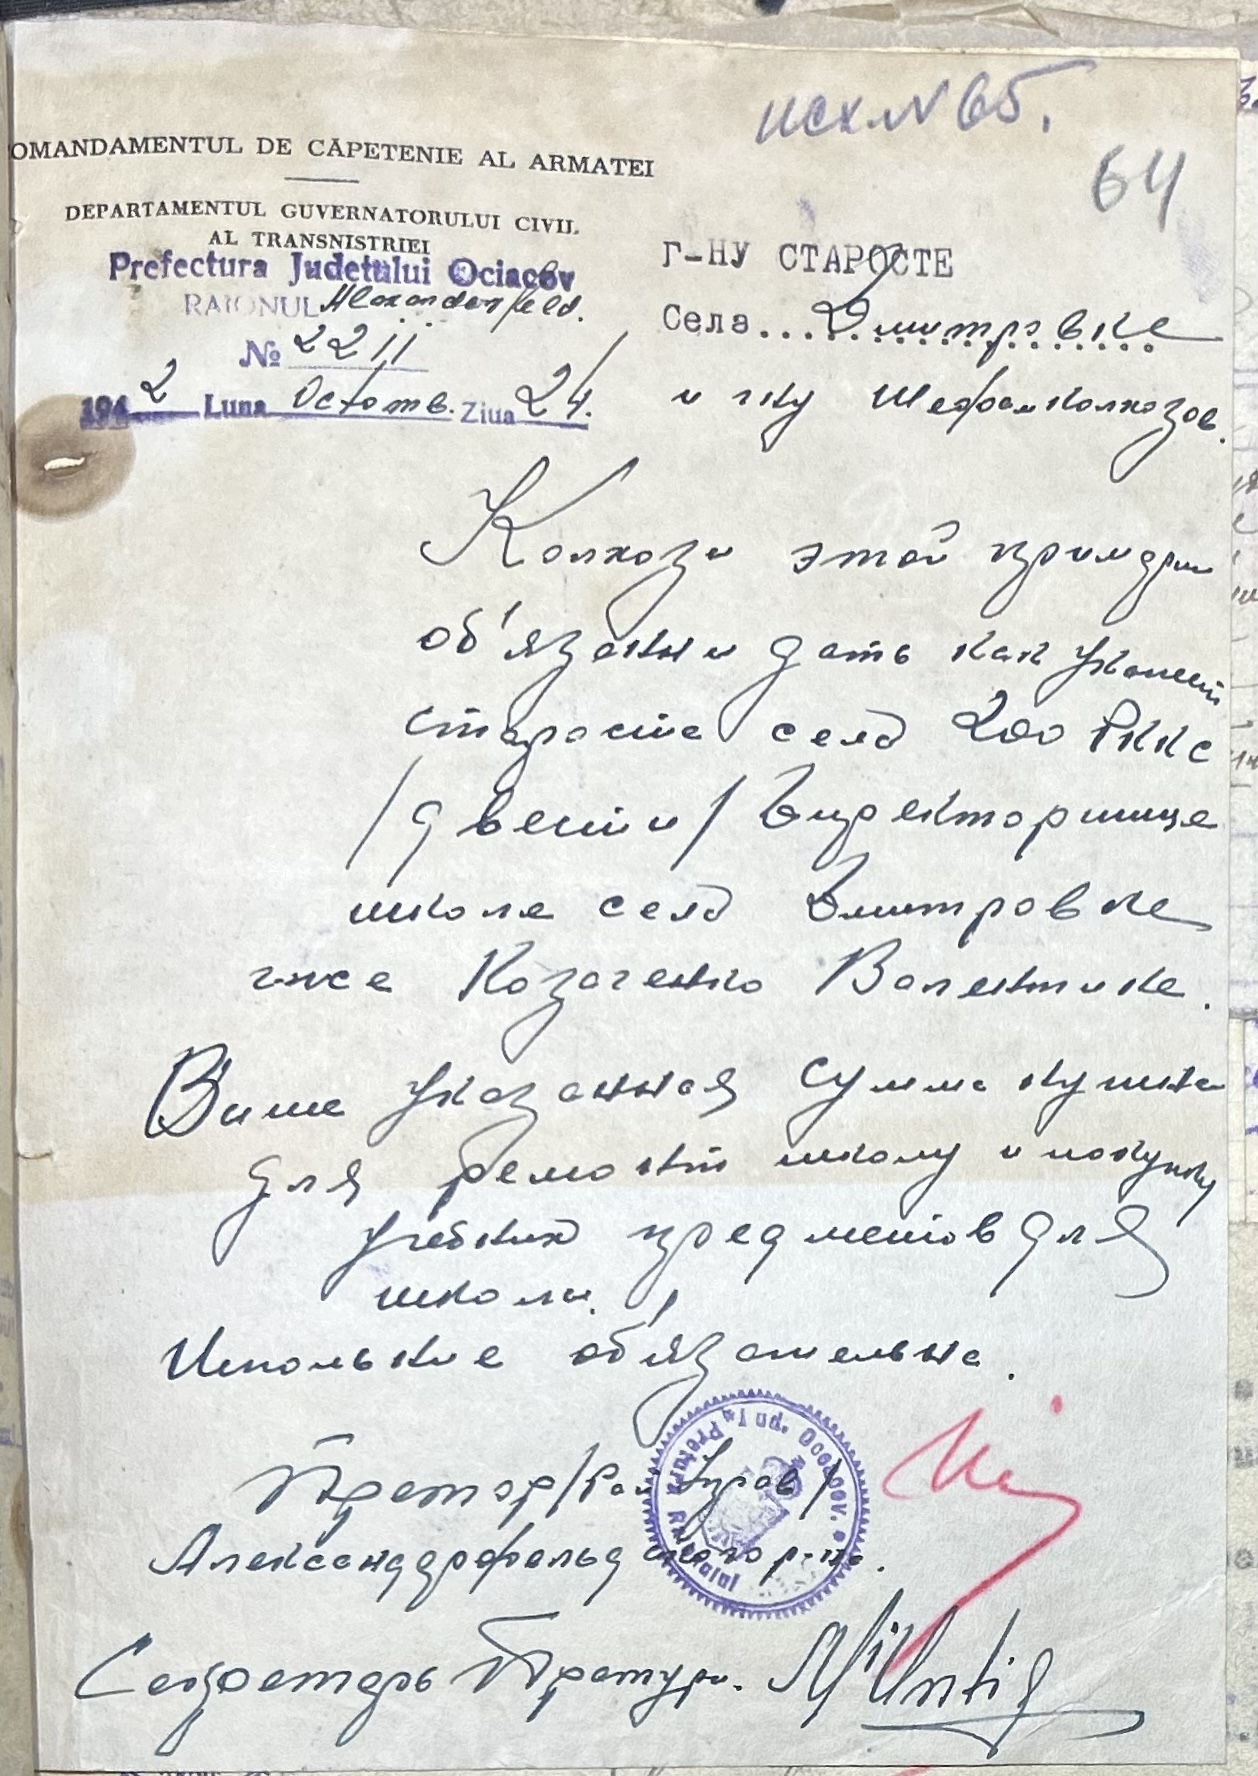 исх. N 65.
64
OMANDAMENTUL DE CĂPETENIE AL ARMATEI
DEPARTAMENTUL GUVERNATORULUI CIVIL
AL TRANSNISTRIEI
Prefectura Judetului Ociacov
RAIONUL Alexanderfeld.
№ 2211
1942 Luna Octomb. Ziua 24.
Г-НУ СТАРОСТЕ
Села...Дмитровке
и г-ну Шефам колхозов.
Колхози этой
об'язанни дать как
старосте села 200 РККС
/двести/ Директорише
школе села Дмитровке
г-же Козаченко Валентине.
Више указанная сумма нужна
для ремонт школу и покупку
учебних предметов для
школи.
об'язательна.
Претор /
Александрфельдского р-на.
Секретарь Претури.
Pretura Raionului
Jud. Oceacov.